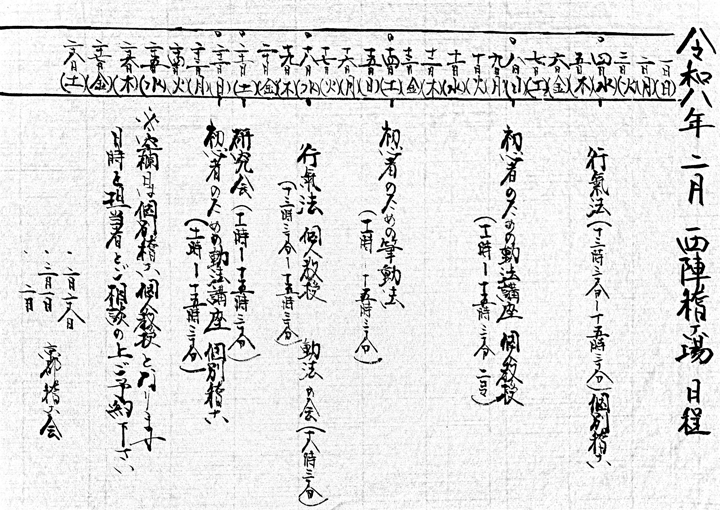 令和八年 二月 西陣稽古場 日程
一日(日)
二日(月)
三日(火)
四日(水)
五日(木)
六日(金)
七日(土)
八日(日)
九日(月)
十日(火)
十一日(水)
十二日(木)
十三日(金)
十四日(土)
十五日(日)
十六日(月)
十七日(火)
十八日(水)
十九日(木)
二十日(金)
二十一日(土)
二十二日(日)
二十三日(月)
二十四日(火)
二十五日(水)
二十六日(木)
二十七日(金)
二十八日(土)
行氣法(十三時三十分ー十五時三十分)個別稽古
初心者のための動法講座 個人教授
(十一時ー十五時三十分
初心者のための筆動法
(十一時ー十五時三十分)
行氣法 個人教授 動法の会(十八時三十分)
(十三時三十分ー十五時三十分)
研究会(十一時ー十五時三十分)
初心者のための動法講座 個別稽古
(十一時ー十五時三十分)
空欄日は個別稽古、個人教授となります
日時を担当者とご相談の上ご予約下さい
京都稽古会